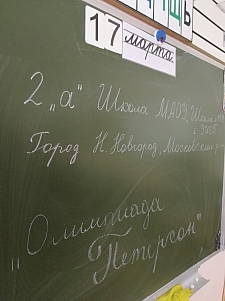 17
марта
2 „а" Школа МАОУ
Город Н. Новгород, Московский
„Олимпиада
Петерсон"